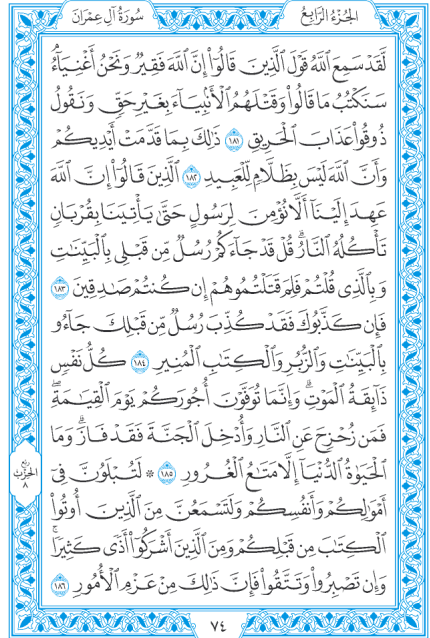 الجُزْءُ الرَّابِعُ
سُورَةُ آلِ عِمْرَانَ
لَّقَدْ سَمِعَ ٱللَّهُ قَوْلَ ٱلَّذِينَ قَالُوٓا۟ إِنَّ ٱللَّهَ فَقِيرٌ وَنَحْنُ أَغْنِيَآءُ ۘ
سَنَكْتُبُ مَا قَالُوا۟ وَقَتْلَهُمُ ٱلْأَنۢبِيَآءَ بِغَيْرِ حَقٍّ وَنَقُولُ
ذُوقُوا۟ عَذَابَ ٱلْحَرِيقِ ١٨١ ذَٰلِكَ بِمَا قَدَّمَتْ أَيْدِيكُمْ
وَأَنَّ ٱللَّهَ لَيْسَ بِظَلَّامٍ لِّلْعَبِيدِ ١٨٢ ٱلَّذِينَ قَالُوٓا۟ إِنَّ ٱللَّهَ
عَهِدَ إِلَيْنَآ أَلَّا نُؤْمِنَ لِرَسُولٍ حَتَّىٰ يَأْتِيَنَا بِقُرْبَانٍ
تَأْكُلُهُ ٱلنَّارُ ۗ قُلْ قَدْ جَآءَكُمْ رُسُلٌ مِّن قَبْلِى بِٱلْبَيِّنَٰتِ
وَبِٱلَّذِى قُلْتُمْ فَلِمَ قَتَلْتُمُوهُمْ إِن كُنتُمْ صَٰدِقِينَ ١٨٣
فَإِن كَذَّبُوكَ فَقَدْ كُذِّبَ رُسُلٌ مِّن قَبْلِكَ جَآءُو
بِٱلْبَيِّنَٰتِ وَٱلزُّبُرِ وَٱلْكِتَٰبِ ٱلْمُنِيرِ ١٨٤ كُلُّ نَفْسٍ
ذَآئِقَةُ ٱلْمَوْتِ ۗ وَإِنَّمَا تُوَفَّوْنَ أُجُورَكُمْ يَوْمَ ٱلْقِيَٰمَةِ ۖ
فَمَن زُحْزِحَ عَنِ ٱلنَّارِ وَأُدْخِلَ ٱلْجَنَّةَ فَقَدْ فَازَ ۗ وَمَا
ٱلْحَيَوٰةُ ٱلدُّنْيَآ إِلَّا مَتَٰعُ ٱلْغُرُورِ ١٨٥ ۞ لَتُبْلَوُنَّ فِىٓ
أَمْوَٰلِكُمْ وَأَنفُسِكُمْ وَلَتَسْمَعُنَّ مِنَ ٱلَّذِينَ أُوتُوا۟
ٱلْكِتَٰبَ مِن قَبْلِكُمْ وَمِنَ ٱلَّذِينَ أَشْرَكُوٓا۟ أَذًى كَثِيرًا ۚ
وَإِن تَصْبِرُوا۟ وَتَتَّقُوا۟ فَإِنَّ ذَٰلِكَ مِنْ عَزْمِ ٱلْأُمُورِ ١٨٦
رُبْع
الحِزْب
٨
٧٤